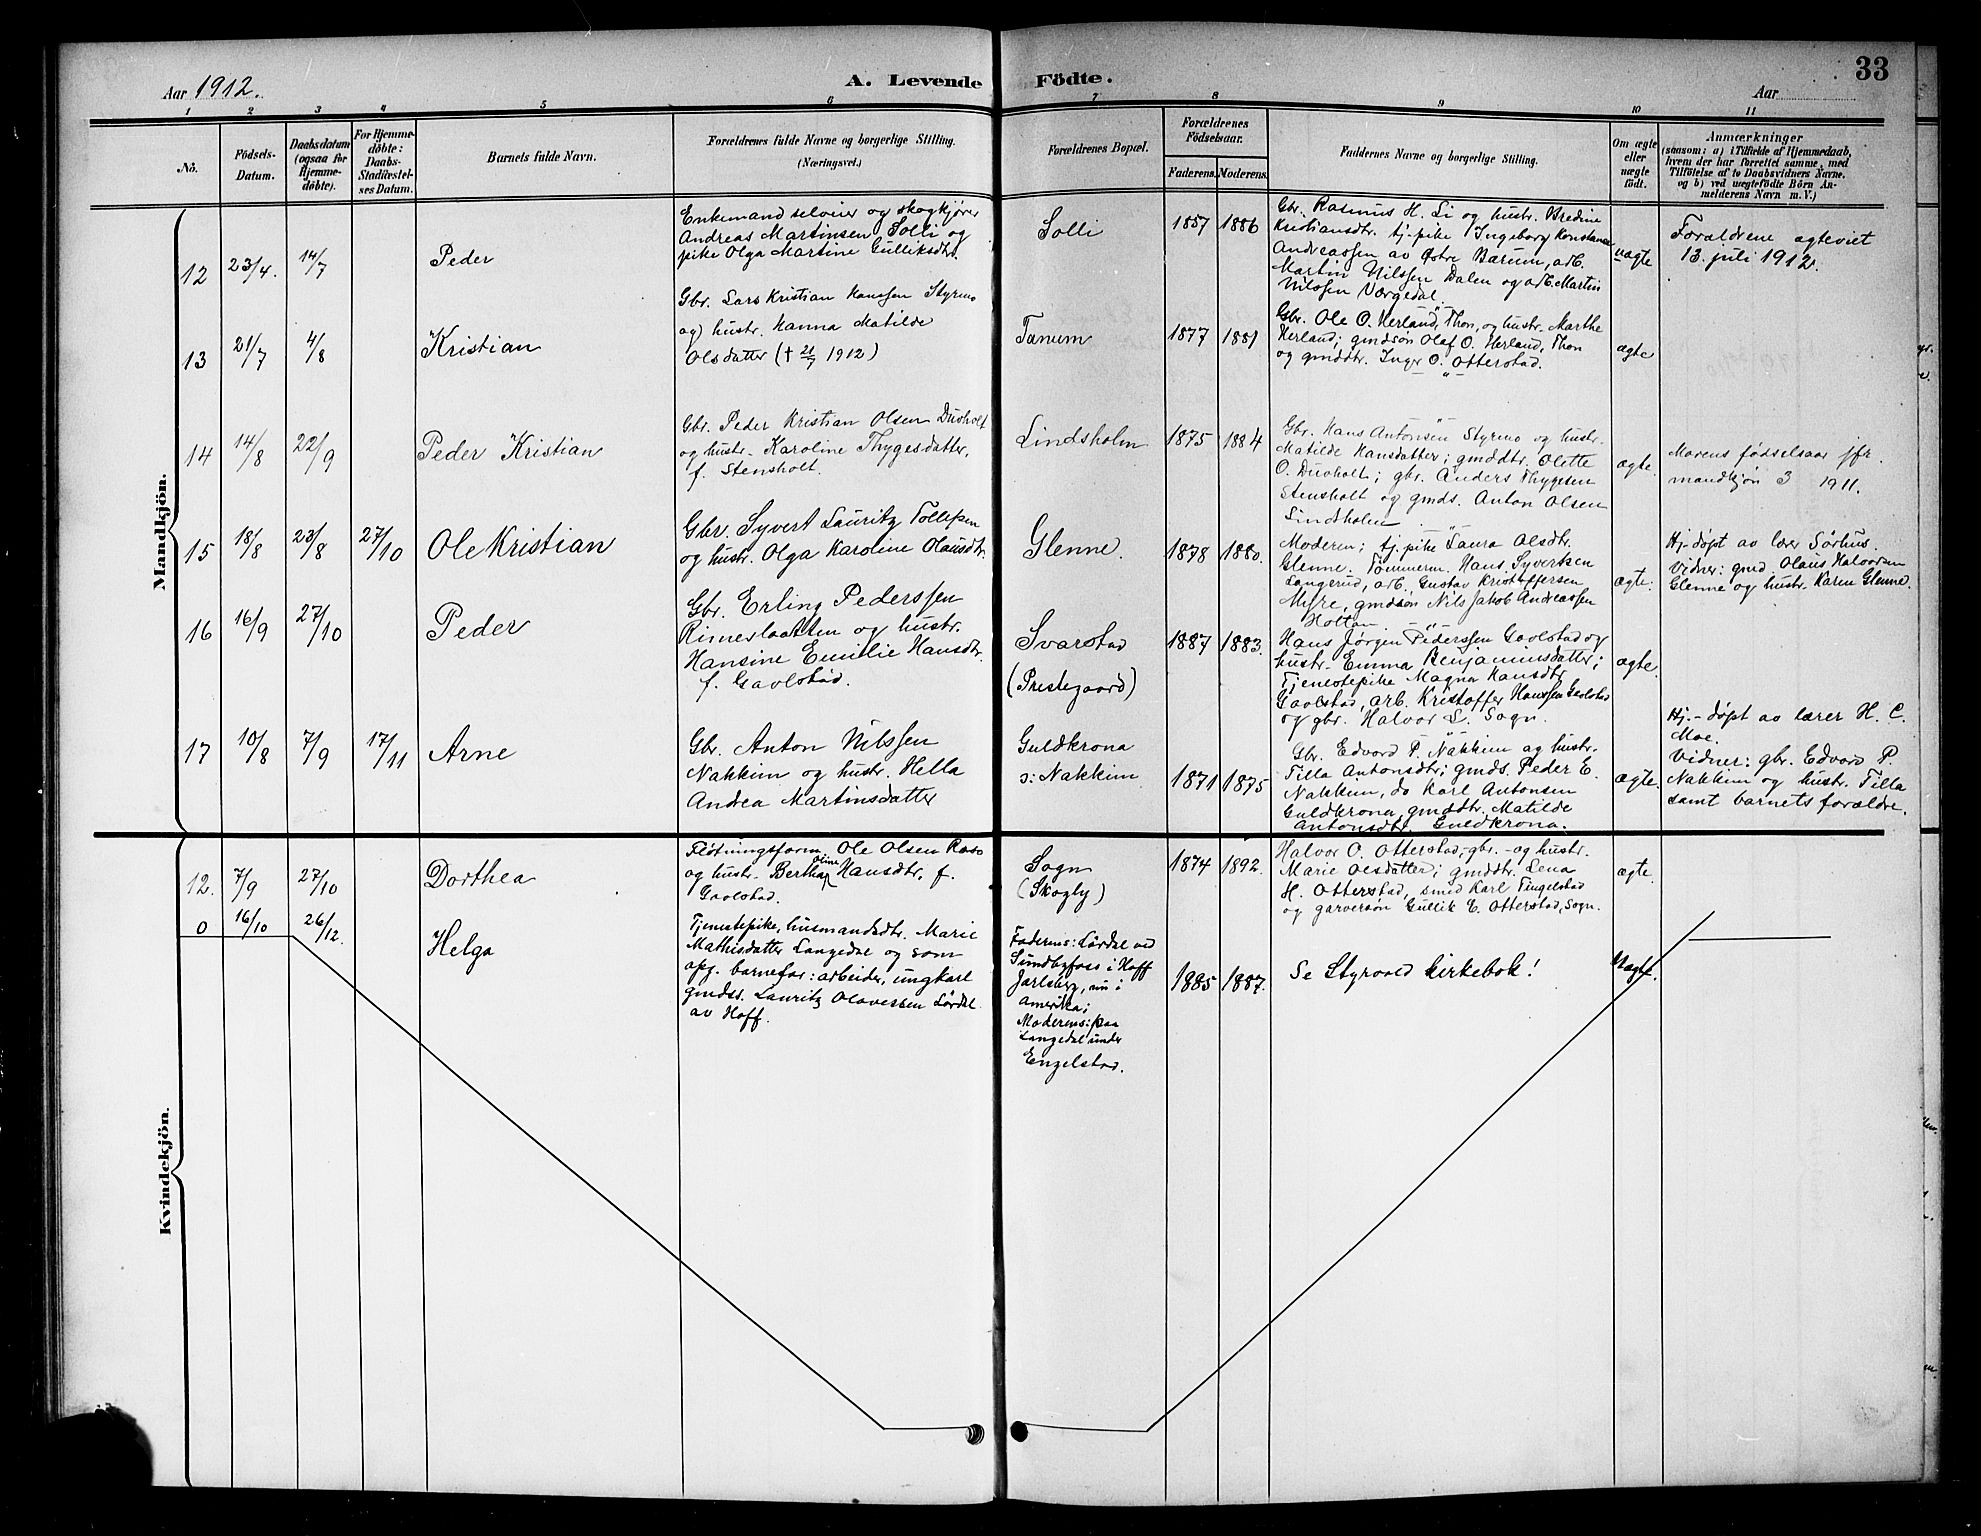 Aar 1912.
A. Levende Födte.
Aar
33
1 2 3 4 5 6 7 8 9 10 11
No.
Födsels-Datum.
Daabsdatum (ogsaa for Hjemme-döbte).
For Hjemme-döbte: Daabs-Stadfæstel-ses Datum.
Barnets fulde Navn.
Forældrenes fulde Navne og borgerlige Stilling.
(Næringsvei.)
Forældrenes Bopæl.
Forældrenes Födselsaar.
Faderens. Moderens.
Faddernes Navne og borgerlige Stilling.
Om ægte eller uægte födt.
Anmærkninger
(saasom: a) i Tilfælde af Hjemmedaab,
hvem der har forrettet samme, med
Tilföielse af to Daabsvidners Navne,
og b) ved uægtefödte Börn An-
melderens Navn m. V.)
Mandkjön.
12 23/4. 14/7 Peder
Enkemand selveier og skogkjører
Andreas Martinsen Solli og
pike Olga Martine Gulliksdtr.
Solli 1857 1886
Gbr. Rasmus H. Li og hustr. Bredine
Kristiansdtr. tj-pike Ingeborg Konstanse
Andreassen av Østre Bærum, arb.
Martin Nilssen Dalen og arb. Martin
Nilssen Værgedal.
uægte
Forældrene egteviet
13. juli 1912.
13 21/7 4/8 Kristian
Gbr. Lars Kristian Hanssen Styrmo
og hustr. Hanna Matilde
Olsdatter († 21/7 1912)
Tanum 1877 1881
Gbr. Ole O. Herland, Thon, og hustr. Marthe
Herland; gmdsøn Olaf O. Herland, Thon
og gmddtr. Inger O. Otterstad.
ægte
14 14/8 22/9 Peder Kristian
Gbr. Peder Kristian Olsen Duoholt
og hustr. Karoline Thygesdatter,
f. Stensholt.
Lindsholm 1875 1884
Gbr. Hans Antonsen Styrmo og hustr.
Matilde Hansdatter; gmddtr. Olette
O. Duoholt; gbr. Anders Thygesen
Stensholt og gmds. Anton Olsen
Lindsholm
ægte.
Morens fødselsaar jfr.
mandkjøn 3 1911.
15 18/8 23/8 27/10 Ole Kristian
Gbr. Syvert Lauritz Tollefsen
og hustr. Olga Karoline Olausdtr.
Glenne. 1878 1880.
Moderen; tj-pike Laura Olsdtr.
Glenne. Tømmerm. Hans Syvertsen
Langerud, arb. Gustav Kristoffersen
Myre, gmdsøn Nils Jakob Andreassen
Holtan.
ægte.
Hj-døpt av lærer Sørhus.
Vidner: gmd. Olaus Halvorsen
Glenne og hustr. Karen Glenne.
16 16/9 27/10 Peder
Gbr. Erling Pederssen
Rimeslaatten og hustr.
Hansine Emilie Hansdtr.
f. Gavlstad.
Svarstad
(Prestegaard)
1887 1883.
Hans Jørgen Pederssen Gavlstad og
hustr. Emma Benjaminsdatter;
Tjenestepike Magna Hansdtr
Gavlstad, arb. Kristoffer Hanssen Gavlstad
og gbr. Halvor L. Sogn.
ægte.
17 10/8 7/9 17/11 Arne
Gbr. Anton Nilssen
Nakkim og hustr. Hella
Andrea Martinsdatter
Guldkrona
ɔ: Nakkim
1871 1875
Gbr. Edvard P. Nakkim og hustr.
Tilla Antonsdtr; gmds. Peder E.
Nakkim, do Karl Antonsen
Guldkrona, gmddtr. Matilde
Antonsdtr. Guldkrona.
ægte.
Hj.-døpt av lærer H. C.
Moe.
Vidner: gbr. Edvard P.
Nakkim og hustr. Tilla
samt barnets forældre.
Kvindekjön.
12. 7/9 27/10 Dorthea
Fløtningsform. Ole Olsen
og hustr. Bertha Oline Hansdtr, f.
Gavlstad.
Sogn
(Skogly)
1874 1892.
Halvor O. Otterstad, gbr. og hustr.
Marie Olsdatter; gmddtr. Lena
H. Otterstad, smed Karl Tingelstad
og garversøn Gullik E. Otterstad, Sogn.
ægte.
0 16/10 26/12. Helga
Tjenestepike, husmandsdtr. Marie
Mathisdatter Langedal og som
opg. barnefar: arbeider, ungkarl
gmdss. Lauritz Olavessen Lørdal
av Hoff.
Faderens: Lørdal ved
Sundbyfoss i Hoff
Jarlsberg, nu i
Amerika;
Moderens: paa
Langedal under
Engelstad.
1885 1887.
Se Styrvold kirkebok!
Uægte.